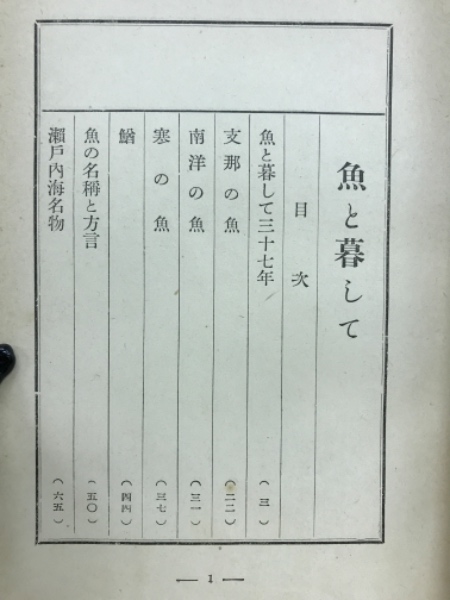 魚と暮して
目次
魚と暮して三十七年 (三)
支那の魚 (二二)
南洋の魚 (三一)
寒の魚 (三七)
鰌 (四四)
魚の名稱と方言 (五〇)
瀨戸内海名物 (六五)
— 1 —